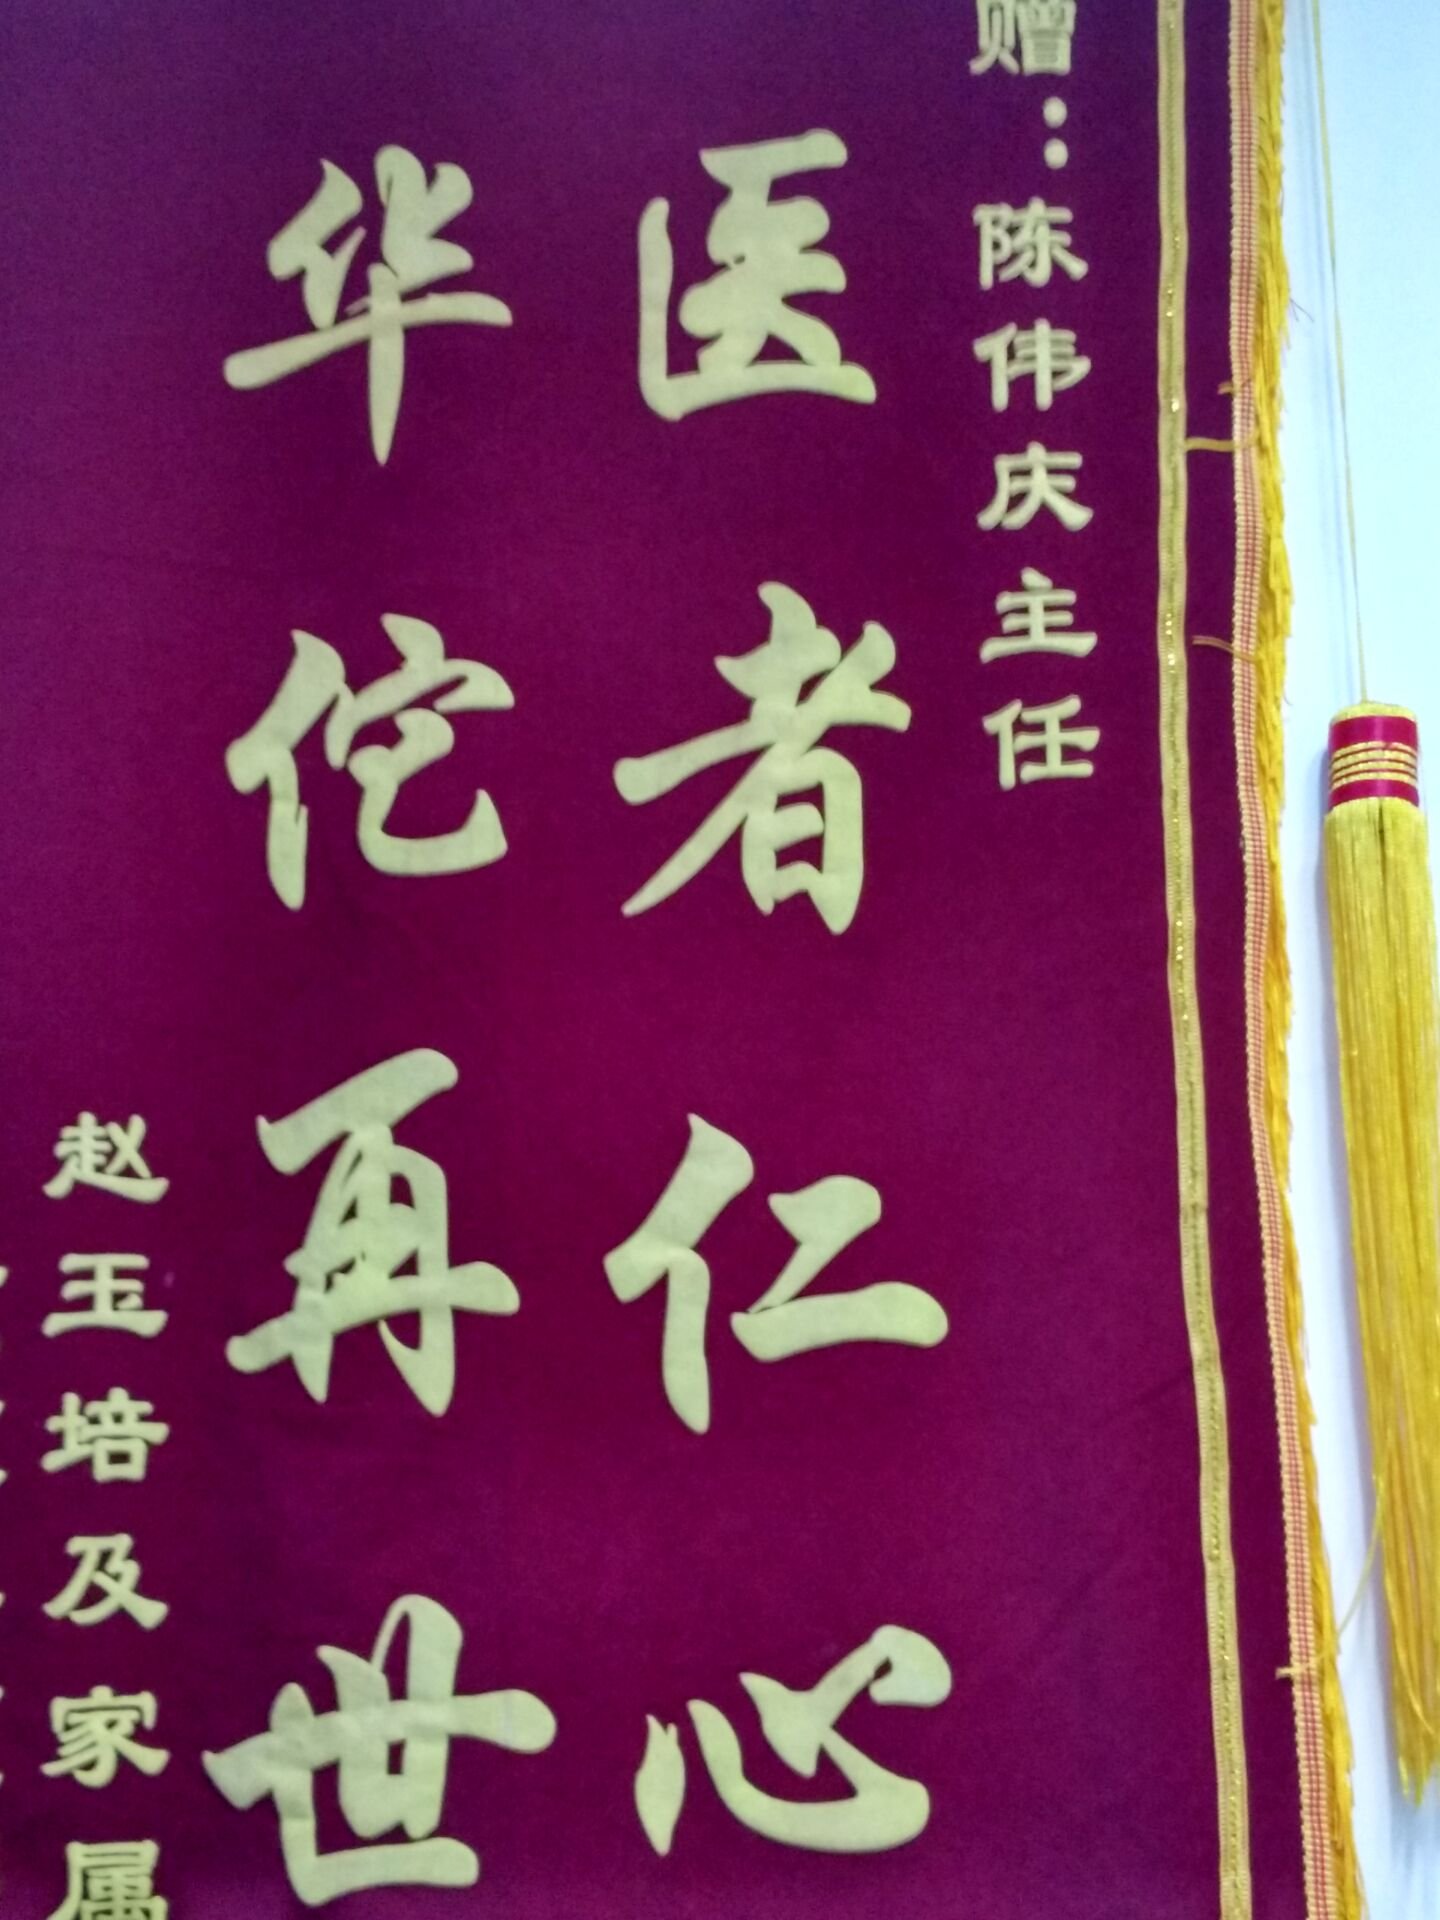 赠：陈伟庆主任
医者仁心
华佗再世
赵玉培及家属